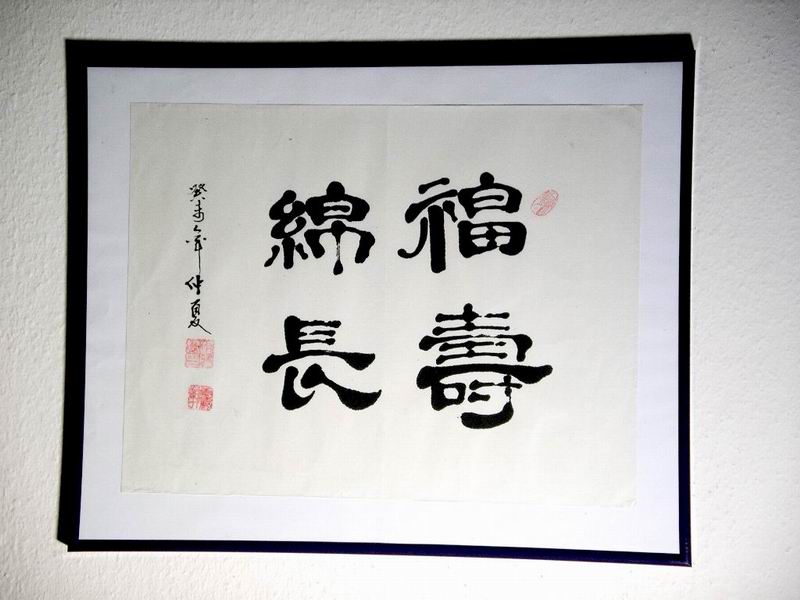 福壽
綿長
癸未年仲夏